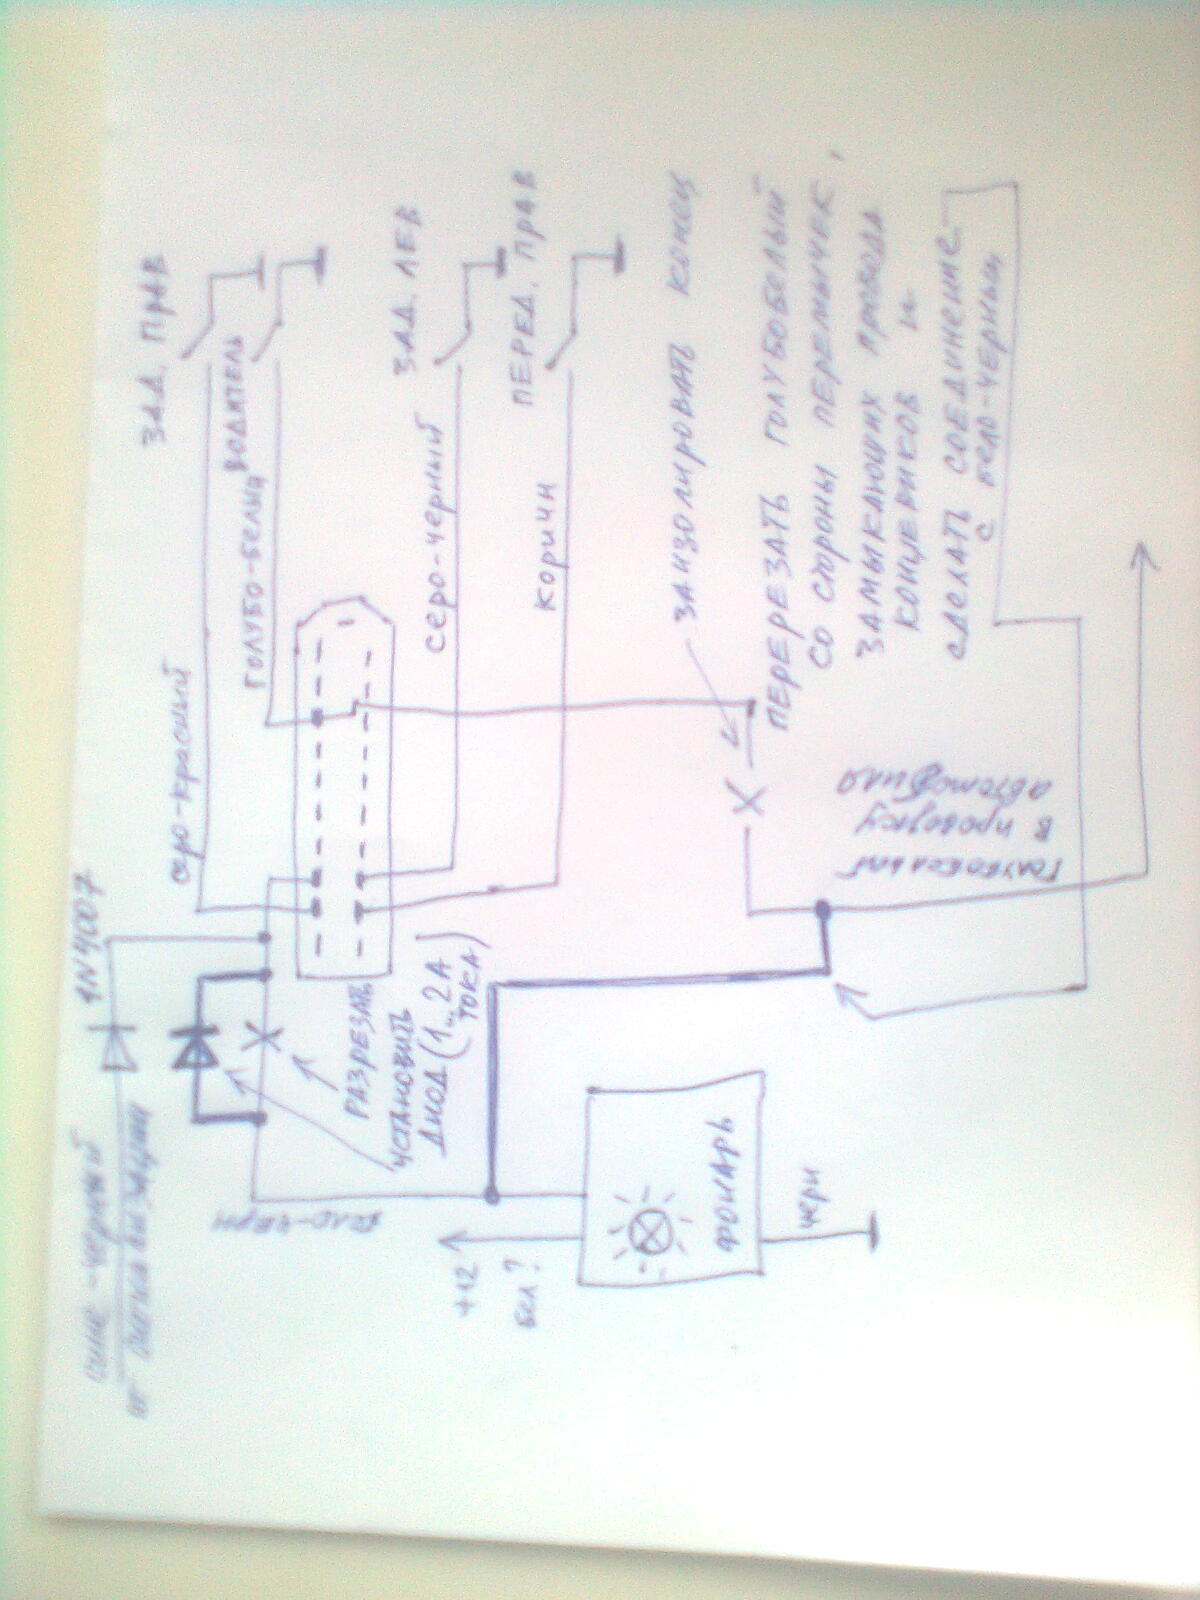 ЗАД. ПРАВ
ВОДИТЕЛЬ
ЗАД. ЛЕВ
ПЕРЕД. ПРАВ
серо-красный
голубо-белый
серо-черный
коричн
1N4007
сине-черный
от сигнализации
РАЗРЕЗАТЬ
УСТАНОВИТЬ
ДИОД (1...2А
ТОКА)
бело-черн
+12
бел?
ФОНАРЬ
черн
ЗАИЗОЛИРОВАТЬ КОНЕЦ
ПЕРЕРЕЗАТЬ ГОЛУБОБЕЛЫЙ
СО СТОРОНЫ ПЕРЕМЫЧЕК,
ЗАМЫКАЮЩИХ ПРОВОДА
КОНЦЕВИКОВ И
СДЕЛАТЬ СОЕДИНЕНИЕ
С БЕЛО-ЧЕРНЫМ
голубобелый
в проводку
автомобиля